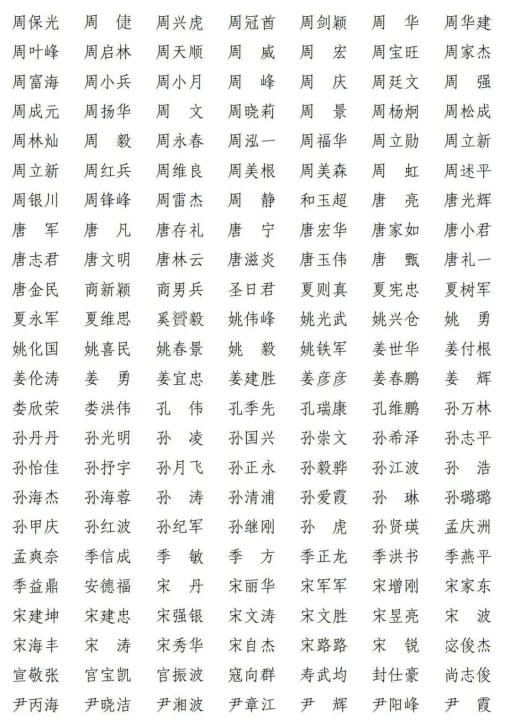 周保光 周 倢 周兴虎 周冠酋 周剑颖 周 华 周华建
周叶峰 周启林 周天顺 周 威 周 宏 周宝旺 周家杰
周富海 周小兵 周小月 周 峰 周 庆 周廷文 周 强
周成元 周扬华 周 文 周晓莉 周 景 周杨炯 周松成
周林灿 周 毅 周永春 周泓一 周福华 周立勋 周立新
周立新 周红兵 周维良 周美根 周美森 周 虹 周述平
周银川 周锋峰 周雷杰 周 静 和玉超 唐 亮 唐光辉
唐 军 唐 凡 唐存礼 唐 宁 唐宏华 唐家如 唐小君
唐志君 唐文明 唐林云 唐滋炎 唐玉伟 唐 甄 唐礼一
唐金民 商新颖 商男兵 圣日君 夏则真 夏宪忠 夏树军
夏永军 夏维思 奚赟毅 姚伟峰 姚光武 姚兴仓 姚 勇
姚化国 姚喜民 姚春景 姚 毅 姚铁军 姜世华 姜付根
姜伦涛 姜 勇 姜宜忠 姜建胜 姜彦彦 姜春鹏 姜 辉
娄欣荣 娄洪伟 孔 伟 孔季先 孔瑞康 孔维鹏 孙万林
孙丹丹 孙光明 孙 凌 孙国兴 孙崇文 孙希泽 孙志平
孙怡佳 孙抒宇 孙月飞 孙正永 孙毅骅 孙江波 孙 浩
孙海杰 孙海蓉 孙 涛 孙清浦 孙爱霞 孙 琳 孙璐璐
孙甲庆 孙红波 孙纪军 孙继刚 孙 虎 孙贤瑛 孟庆洲
孟爽奈 季信成 季 敏 季 方 季正龙 季洪书 季燕平
季益鼎 安德福 宋 丹 宋丽华 宋军军 宋增刚 宋家东
宋建坤 宋建忠 宋强银 宋文涛 宋文胜 宋昱亮 宋 波
宋海丰 宋 涛 宋秀华 宋自杰 宋路路 宋 锐 宓俊杰
宣敬张 官宝凯 官振波 寇向群 寿武均 封仕豪 尚志俊
尹丙海 尹晓洁 尹湘波 尹章江 尹 辉 尹阳峰 尹 霞